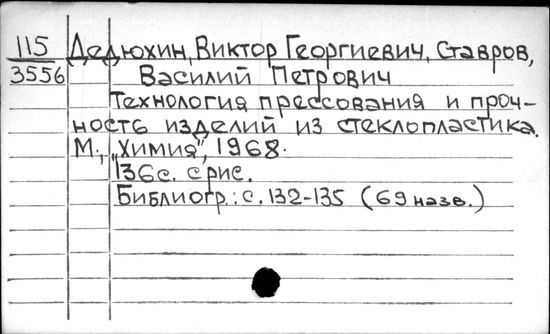 115 Дедюхин, Виктор Георгиевич, Ставров,
3556 Василий Петрович
Технология прессования и проч-
ность изделий из стеклопластика.
М., „Химия", 1968.
136с. с рис.
Библиогр.: с. 132-135 (69 назв.)